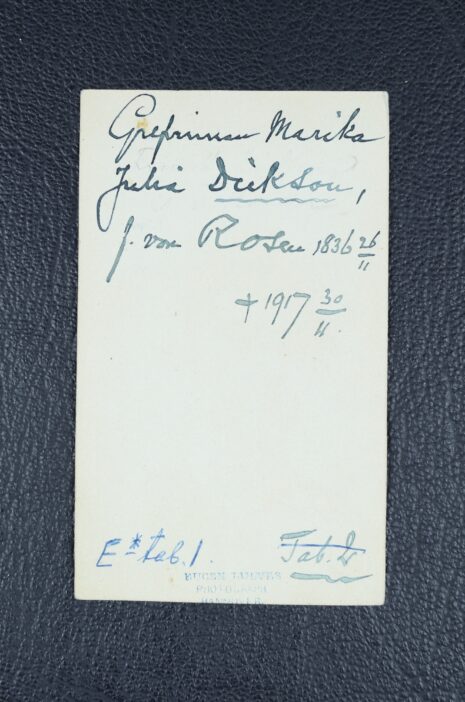 Grefvinnan Marika
Julia Dickson,
f. von Rosen 1836 26/11
+ 1917 30/11.
E* tab. 1. Tab. 2
EUGEN LULVES
PHOTOGRAPH
HANNOVER